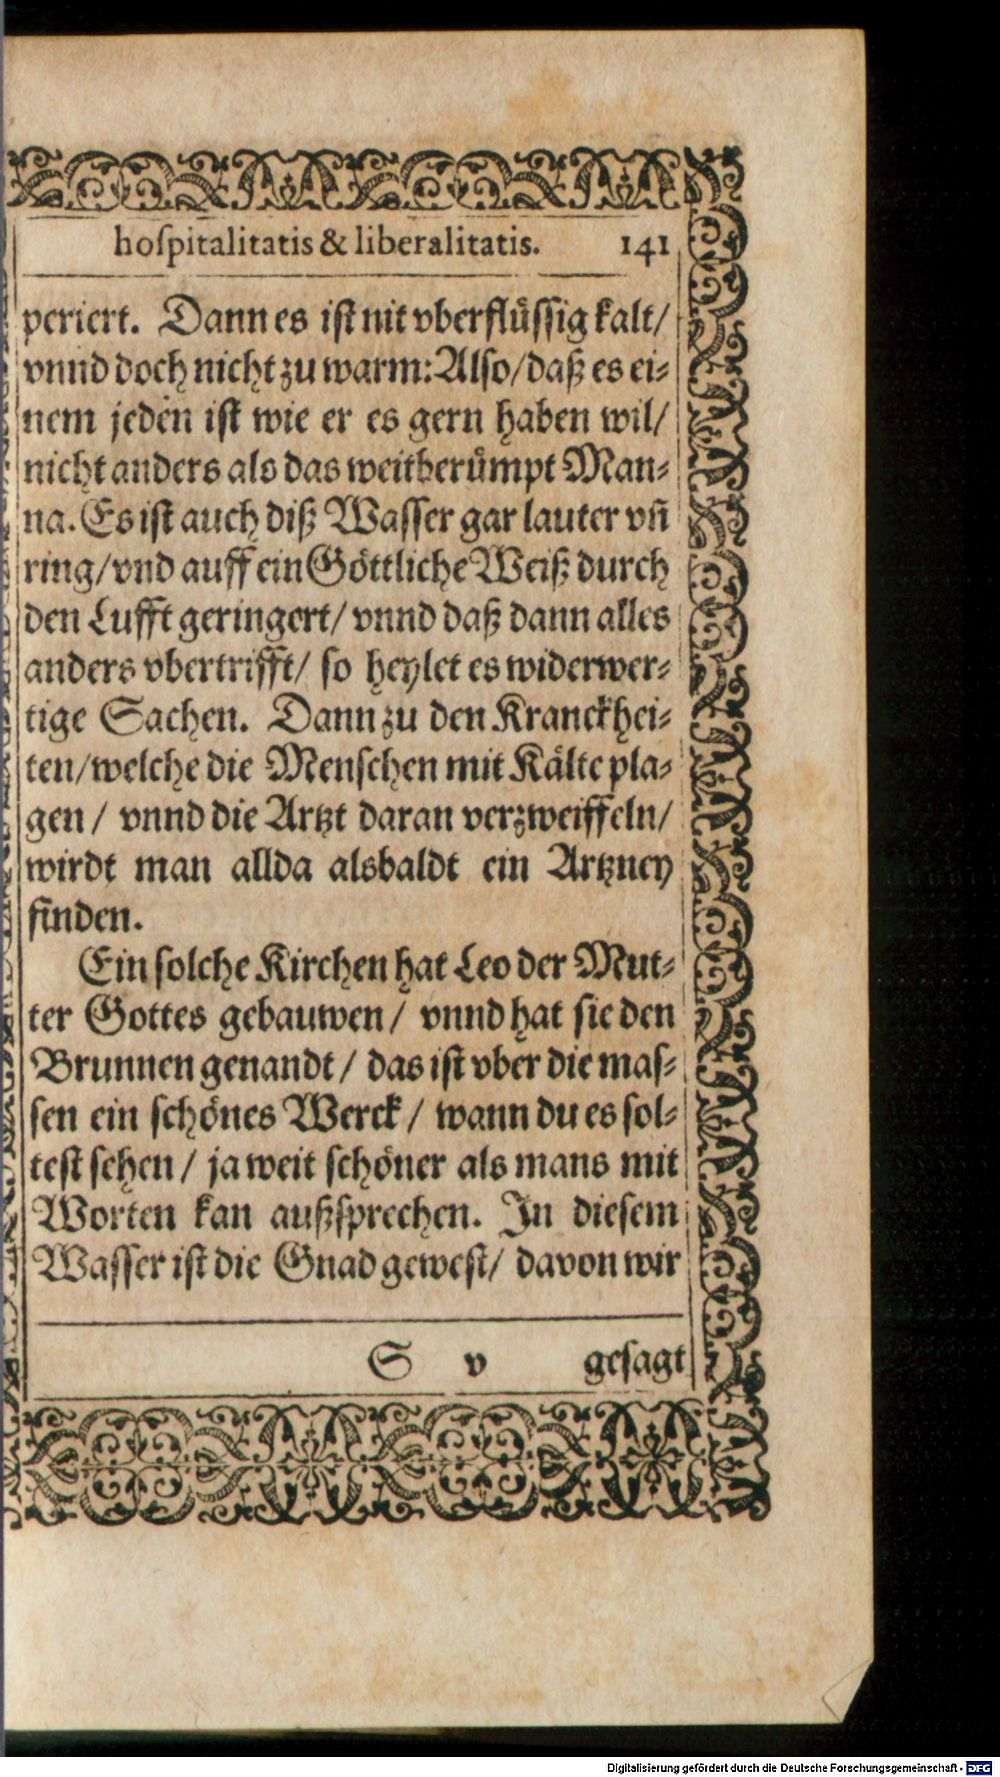 hoſpitalitatis & liberalitatis. 141
periert. Dann es iſt nit vberflüſſig kalt/
vnnd doch nicht zu warm: Alſo/daß es ei-
nem jeden iſt wie er es gern haben wil/
nicht anders als das weitberümpt Man-
na. Es iſt auch diß Waſſer gar lauter vñ
ring/vnd auff ein Göttliche Weiß durch
den Lufft geringert/ vnnd daß dann alles
anders vbertrifft/ ſo heylet es widerwer-
tige Sachen. Dann zu den Kranckhei-
ten/welche die Menſchen mit Kälte pla-
gen/ vnnd die Artzt daran verzweiffeln/
wirdt man allda alsbaldt ein Artzney
finden.
Ein ſolche Kirchen hat Leo der Mut-
ter Gottes gebauwen/ vnnd hat ſie den
Brunnen genandt/ das iſt vber die maſ-
ſen ein ſchönes Werck/ wann du es ſol-
teſt ſehen/ ja weit ſchöner als mans mit
Worten kan außſprechen. In dieſem
Waſſer iſt die Gnad geweſt/ davon wir
S v geſagt
Digitalisierung gefördert durch die Deutsche Forschungsgemeinschaft - DFG